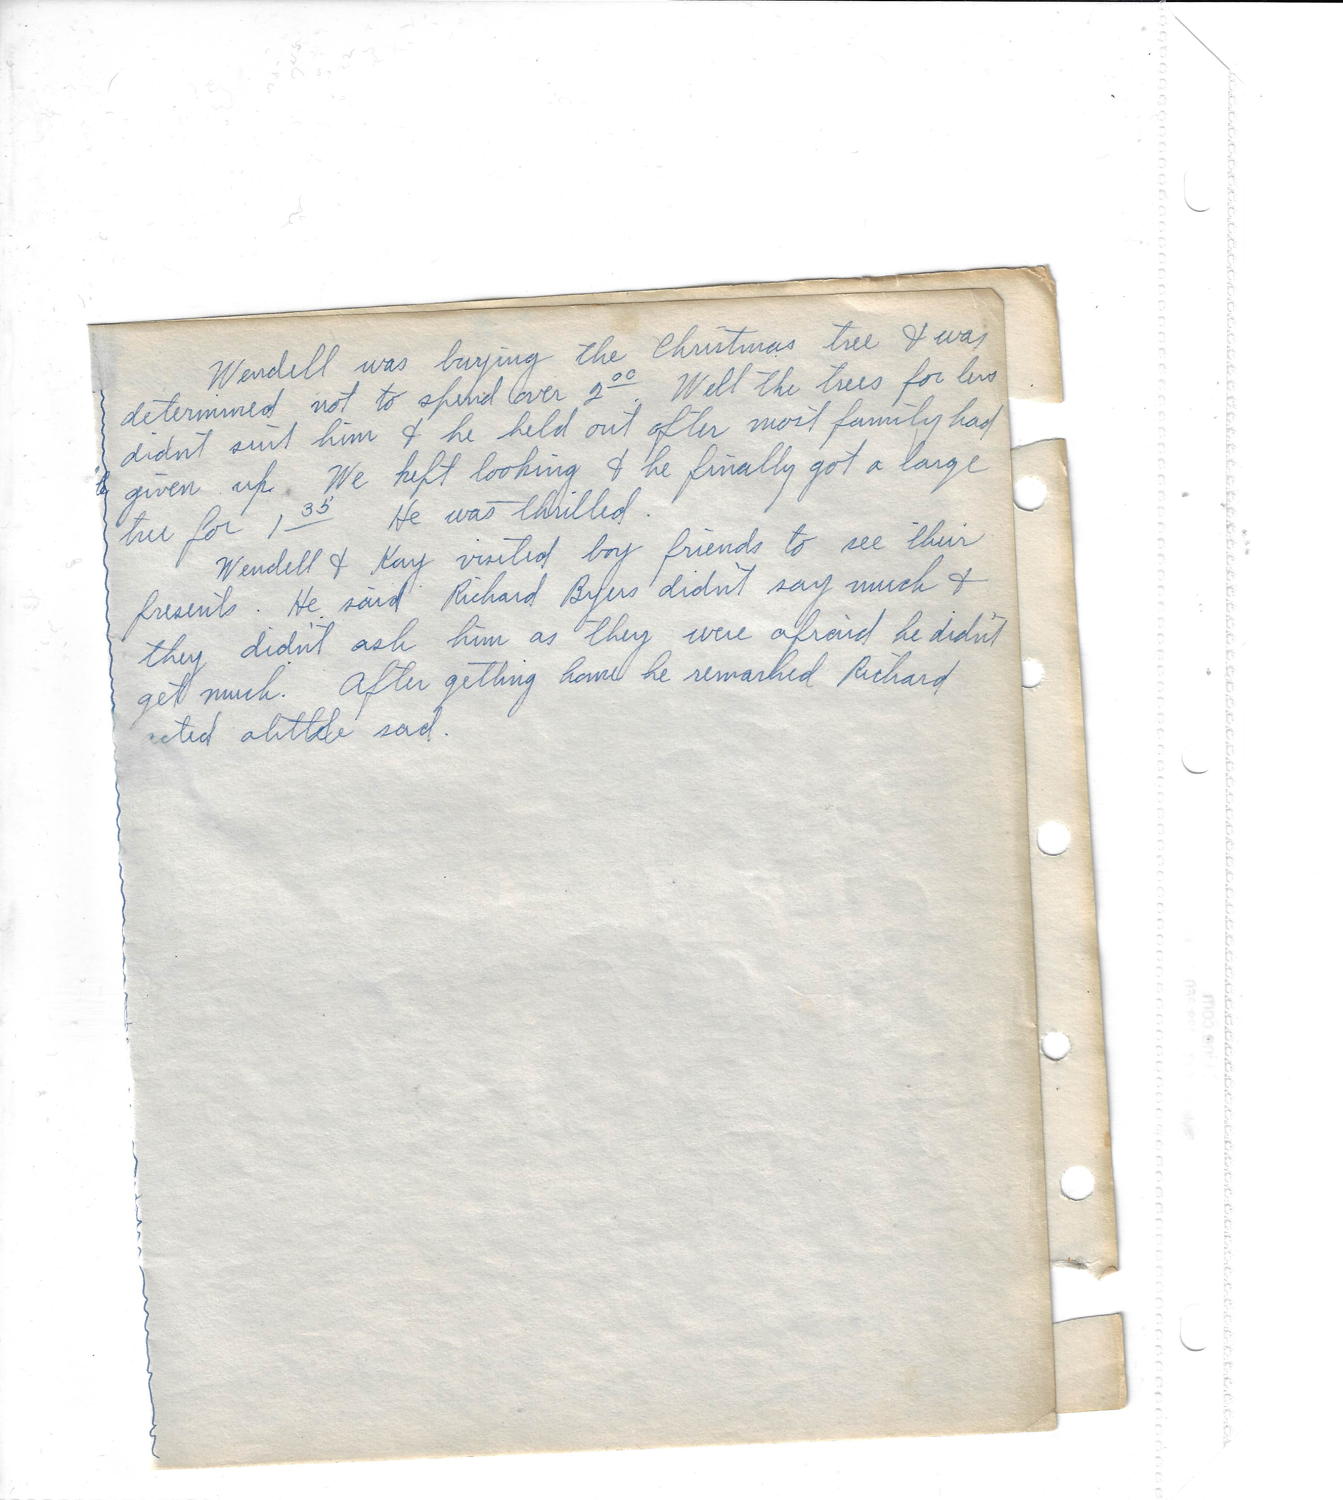 Wendell was buying the Christmas tree & was
determined not to spend over 2 00. Well the trees for less
didn't suit him & he held out after most family had
given up. We kept looking & he finally got a large
tree for 1 35 He was thrilled.
Wendell & Kay visited boy friends to see their
presents. He said Richard Byers didn't say much &
they didn't ask him as they were afraid he didn't
get much. After getting home he remarked Richard
acted alittle sad.